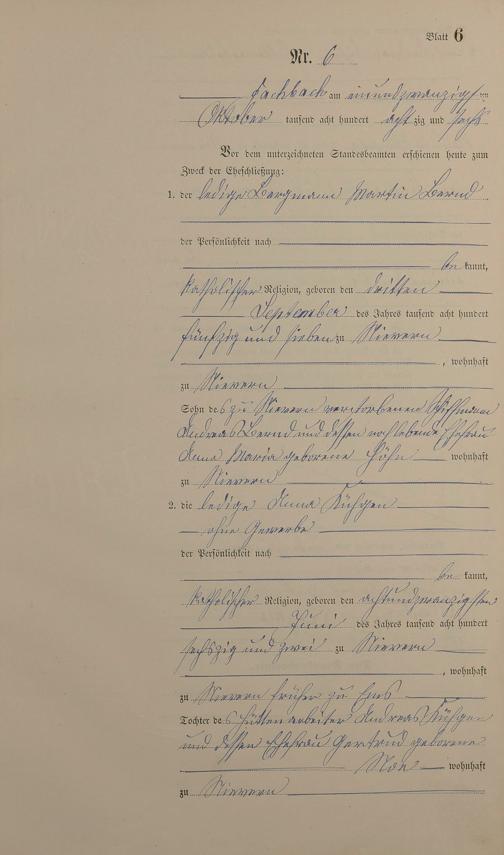 Blatt 6
Nr. 6
Fachbach am einundzwanzigsten
Oktober tausend acht hundert achtzig und sechs
Vor dem unterzeichneten Standesbeamten erschienen heute zum
Zweck der Eheschließung:
1. der ledige Bergmann Martin Bernd
der Persönlichkeit nach
be kannt,
katholischer Religion, geboren den dritten
September des Jahres tausend acht hundert
fünfzig und sieben zu Nievern
, wohnhaft
zu Nievern
Sohn des zu Nievern verstorbenen Schiffmann
Andreas Bernd und dessen nachlebende Ehefrau
Anna Maria geborene Höhn wohnhaft
zu Nievern
2. die ledige Anna Kühgen
ohne Gewerbe
der Persönlichkeit nach
be kannt,
katholischer Religion, geboren den achtundzwanzigsten
Juni des Jahres tausend acht hundert
sechszig und zwei zu Nievern
, wohnhaft
zu Nievern früher zu Ems
Tochter des Hüttenarbeiter Andreas Kühgen
und dessen Ehefrau Gertrud geborene
wohnhaft
zu Nievern